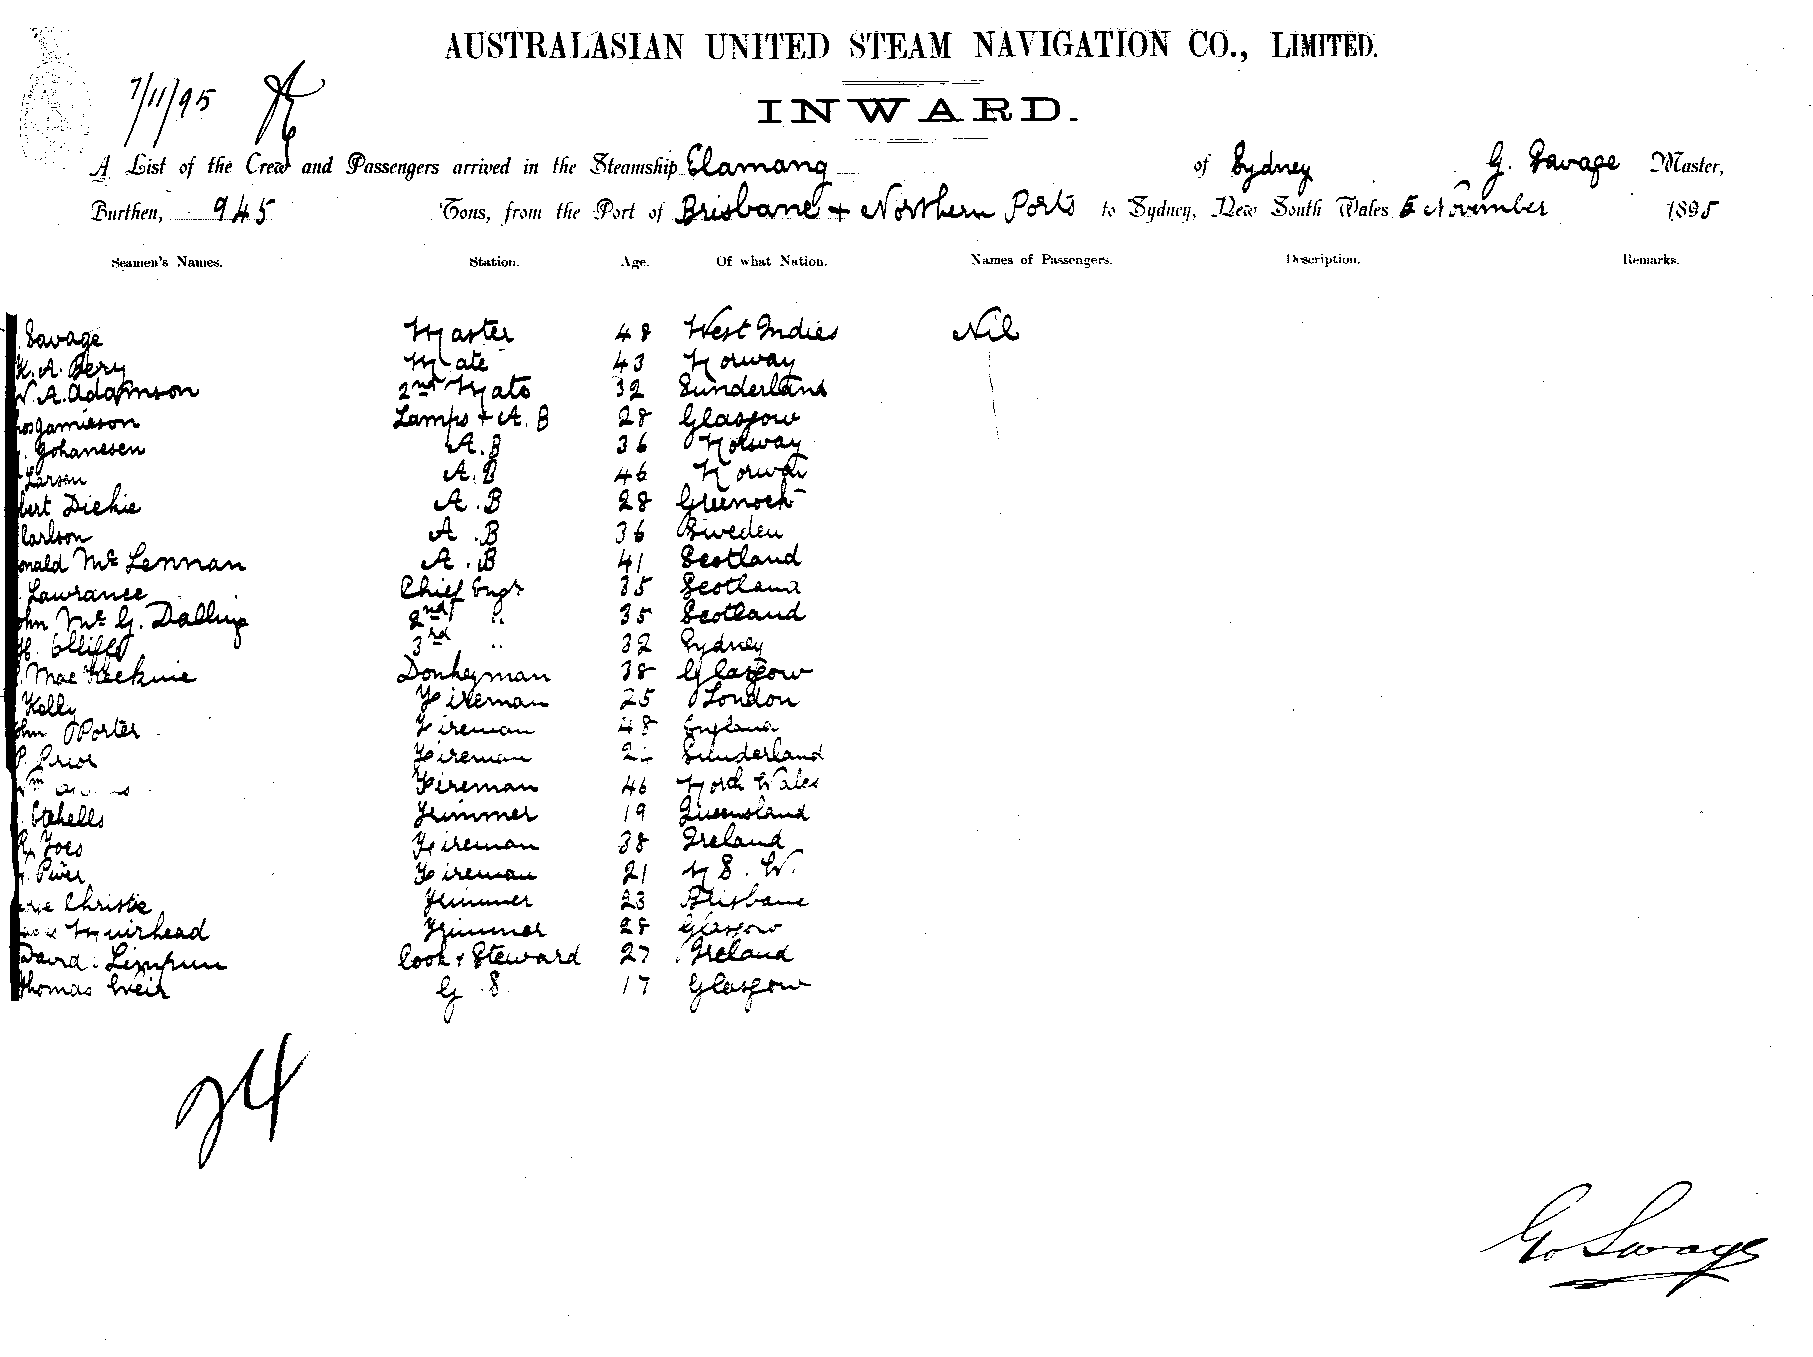 AUSTRALASIAN UNITED STEAM NAVIGATION CO., LIMITED.
7/11/95
INWARD.
A List of the Crew and Passengers arrived in the Steamship Elamang of Sydney G. Savage Master,
Burthen, 945 Tons, from the Port of Brisbane + Northern Ports to Sydney, New South Wales 5 November 1895
Seamen's Names. Station. Age. Of what Nation. Names of Passengers. Description. Remarks.
Savage Master 48 West Indies Nil
K. A. Bery Mate 43 Norway
W. A. Adamson 2nd Mate 32 Sunderland
Jamieson Lamps + A. B 28 Glasgow
Johanesen A.B 36 Norway
Larsen A.B 46 Norwa
bert Dickie A.B 28 Greenock
Carlson A.B 36 Sweden
onald Mc Lennan A.B 41 Scotland
Lawrance Chief Engr 35 Scotland
ohn Mc G. Dalling 2nd " 35 Scotland
3rd " 32 Sydney
Mac Kecknie Donkeyman 38 Glasgow
Kelly Fireman 25 London
ohn Porter Fireman 48 England
Prior Fireman Sunderland
Wm Fireman 46 North Wales
Etchells Trimmer 19 Queensland
Fireman 38 Ireland
Fireman 21 N S. W.
Christie Trimmer 23 Brisbane
Muirhead Trimmer 28 Glasgow
David Cook + Steward 27 Ireland
Thomas Weir G S 17 Glasgow
24
Go Savage